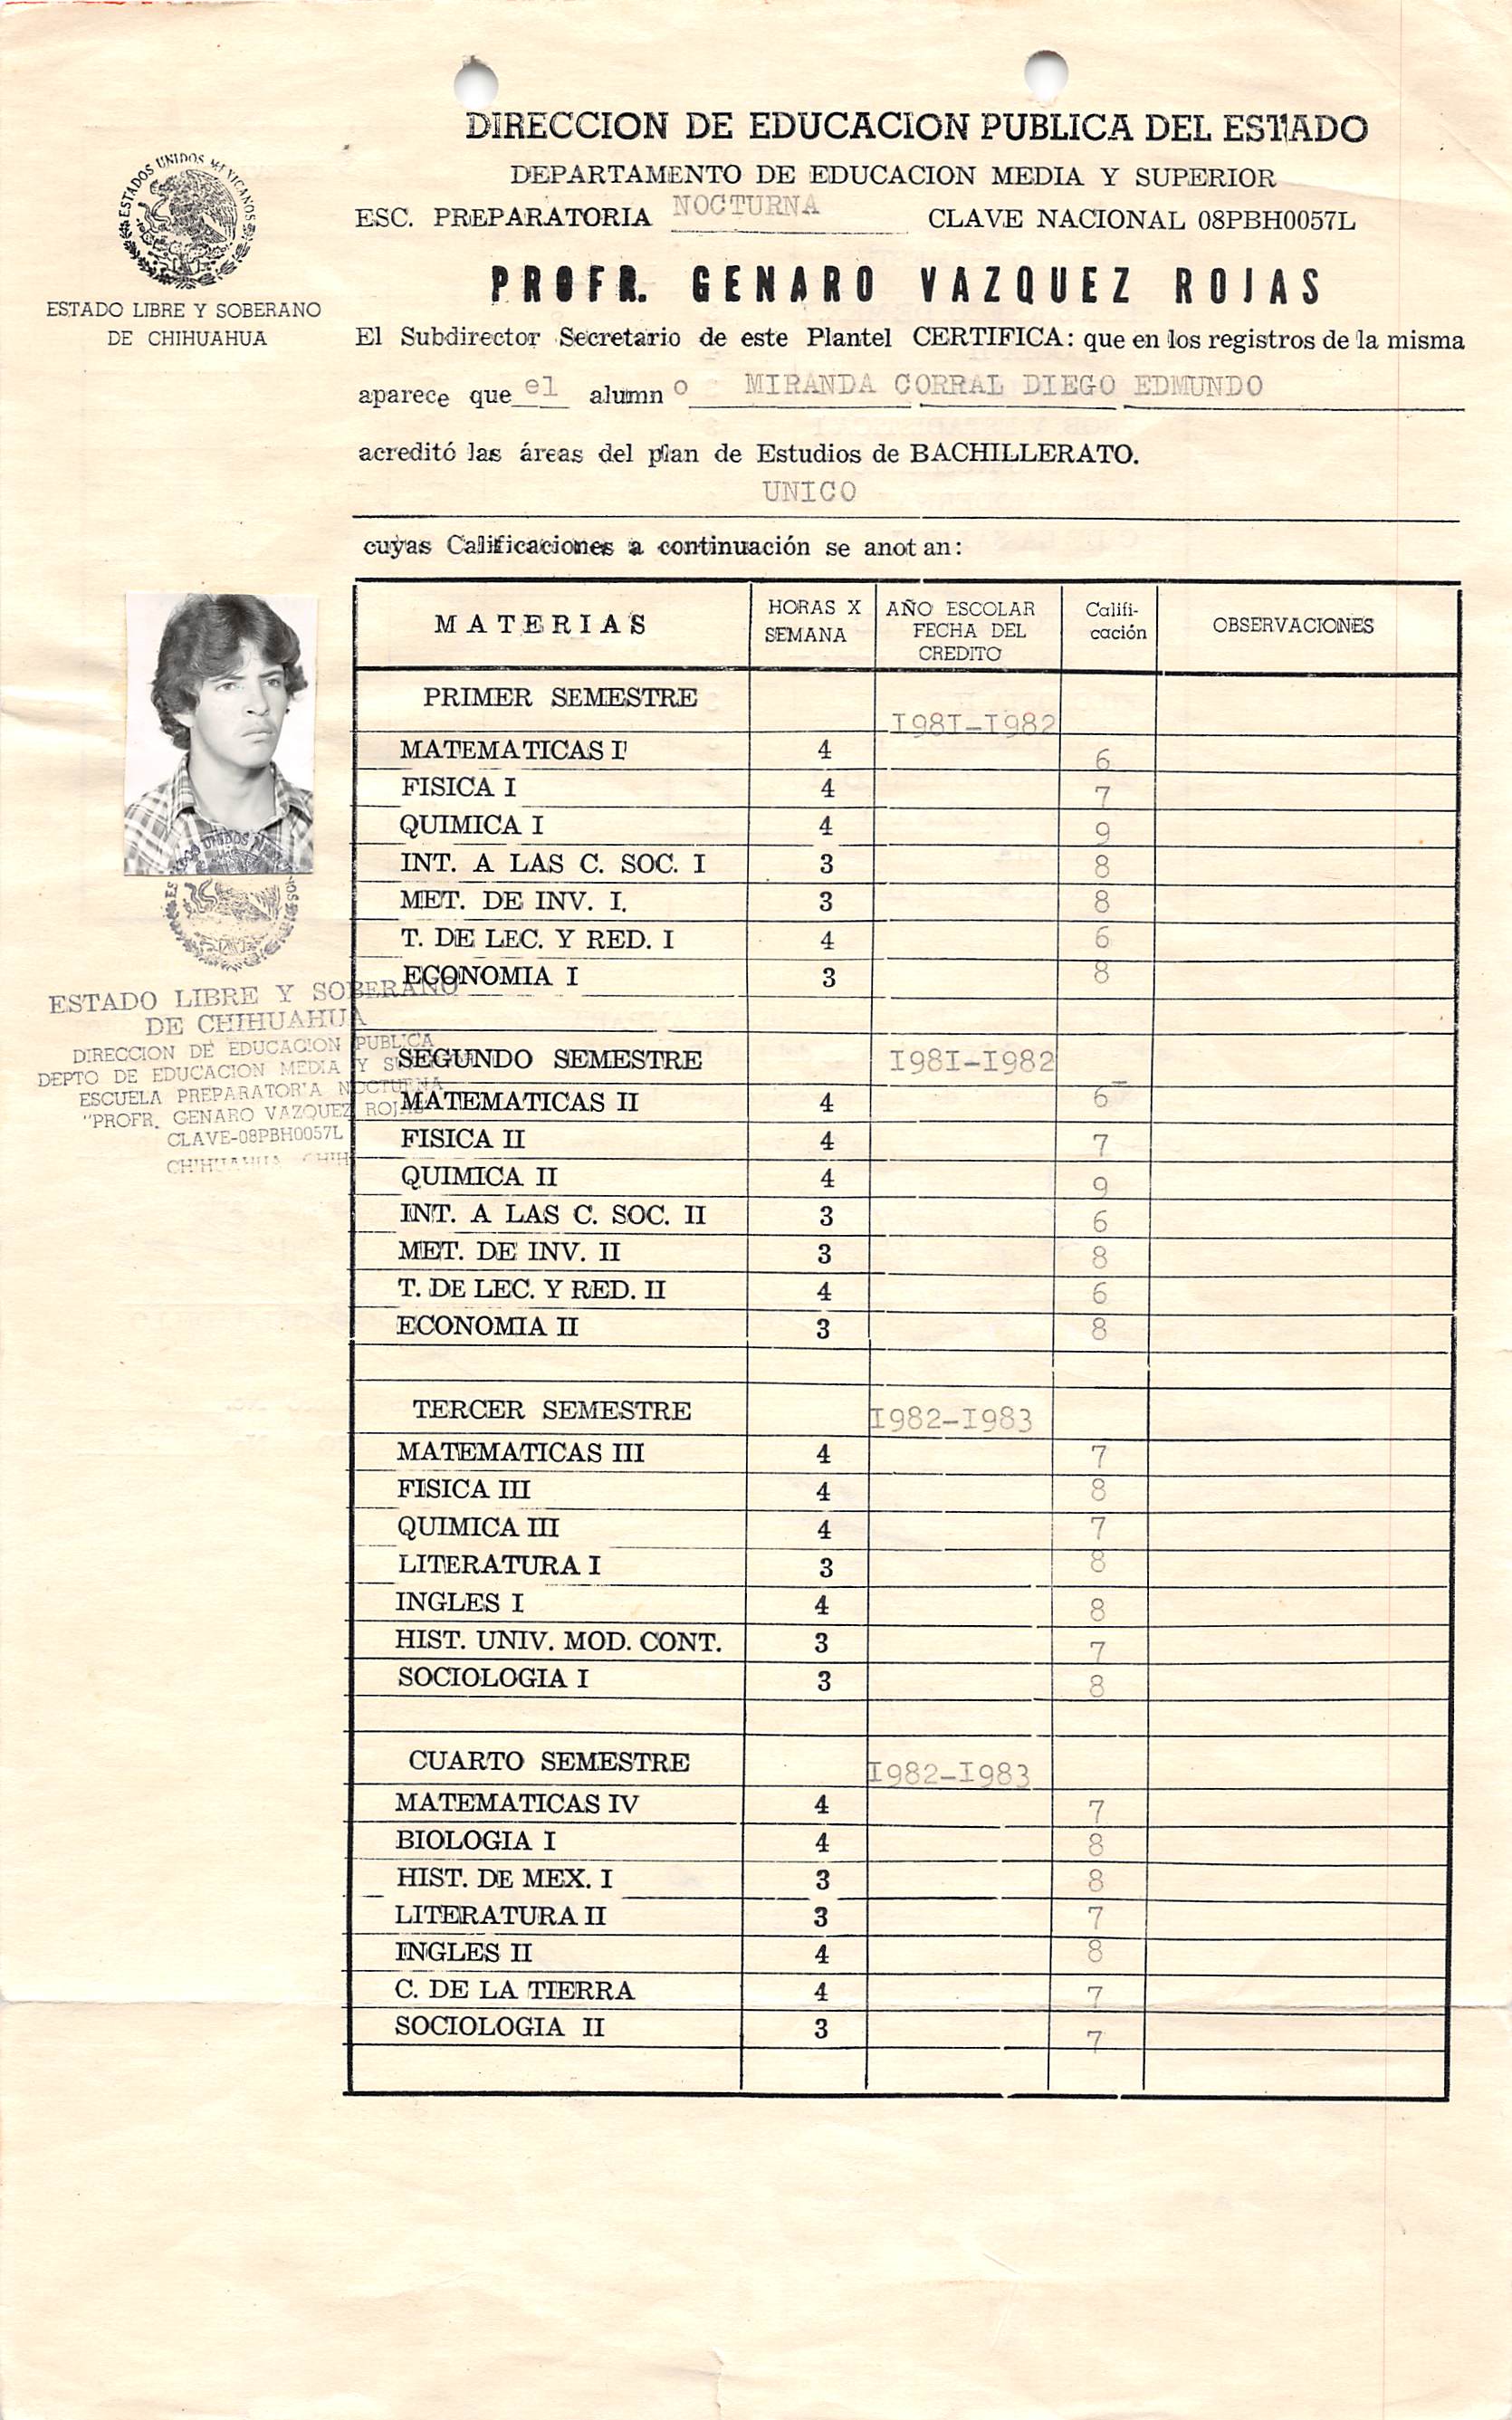 DIRECCION DE EDUCACION PUBLICA DEL ESTADO
DEPARTAMENTO DE EDUCACION MEDIA Y SUPERIOR
ESC. PREPARATORIA NOCTURNA CLAVE NACIONAL 08PBH0057L
PROFR. GENARO VAZQUEZ ROJAS
ESTADOS UNIDOS MEXICANOS
ESTADO LIBRE Y SOBERANO
DE CHIHUAHUA
El Subdirector Secretario de este Plantel CERTIFICA: que en los registros de la misma
aparece que el alumno MIRANDA CORRAL DIEGO EDMUNDO
acreditó las áreas del plan de Estudios de BACHILLERATO.
UNICO
cuyas Calificaciones a continuación se anotan:
MATERIAS HORAS X SEMANA AÑO ESCOLAR FECHA DEL CREDITO Califi-cación OBSERVACIONES
PRIMER SEMESTRE I98I-I982
MATEMATICAS I 4 6
FISICA I 4 7
QUIMICA I 4 9
INT. A LAS C. SOC. I 3 8
MET. DE INV. I. 3 8
T. DE LEC. Y RED. I 4 6
ECONOMIA I 3 8
SEGUNDO SEMESTRE I98I-I982
MATEMATICAS II 4 6
FISICA II 4 7
QUIMICA II 4 9
INT. A LAS C. SOC. II 3 6
MET. DE INV. II 3 8
T. DE LEC. Y RED. II 4 6
ECONOMIA II 3 8
TERCER SEMESTRE I982-I983
MATEMATICAS III 4 7
FISICA III 4 8
QUIMICA III 4 7
LITERATURA I 3 8
INGLES I 4 8
HIST. UNIV. MOD. CONT. 3 7
SOCIOLOGIA I 3 8
CUARTO SEMESTRE I982-I983
MATEMATICAS IV 4 7
BIOLOGIA I 4 8
HIST. DE MEX. I 3 8
LITERATURA II 3 7
INGLES II 4 8
C. DE LA TIERRA 4 7
SOCIOLOGIA II 3 7
ESTADO LIBRE Y SOBERANO
DE CHIHUAHUA
DIRECCION DE EDUCACION PUBLICA
DEPTO DE EDUCACION MEDIA Y
ESCUELA PREPARATORIA NOCTURNA
"PROFR. GENARO VAZQUEZ ROJAS"
CLAVE-08PBH0057L
CHIHUAHUA CHIH